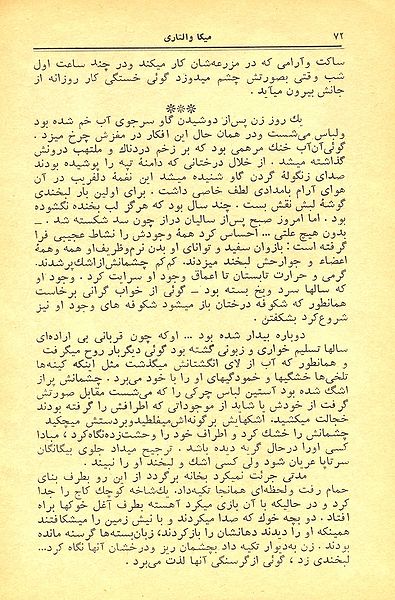 ۷۲
میکا والتاری
ساکت وآرامی که در مزرعه‌شان کار میکند ودر چند ساعت اول
شب وقتی بصورتش چشم میدوزد گوئی خستگی کار روزانه از
جانش بیرون میآید .
***
یك روز زن پس‌از دوشیدن گاو سرجوی آب خم شده بود
ولباس می‌شست ودر همان حال این افکار در مغزش چرخ میزد .
گوئی‌آن‌آب خنك مرهمی بود که بر زخم دردناك و ملتهب درونش
گذاشته میشد . از خلال درختانی که دامنهٔ تپه را پوشیده بودند
صدای زنگولهٔ گردن گاو شنیده میشد این نغمهٔ دلفریب در آن
هوای آرام بامدادی لطف خاصی داشت . برای اولین بار لبخندی
گوشهٔ لبش نقش بست . چند سال بود که هرگز لب بخنده نگشوده
بود . اما امروز صبح پس‌از سالیان دراز چون سد شکسته شد . —
بدون هیچ علتی ... احساس کرد همهٔ وجودش را نشاط عجیبی فرا
گرفته است : بازوان سفید و توانای او بدن نرم‌وظریف‌او همه وهمهٔ
اعضاء و جوارحش لبخند میزدند. کم‌کم چشمانش‌ازاشك‌پرشدند.
گرمی و حرارت تابستان تا اعماق وجود او سرایت کرد . وجود او
که سالها سرد ویخ بسته بود — گوئی از خواب گرانی برخاست
همانطور که شکوفه درختان باز میشود شکوفه های وجود او نیز
شروع‌کرد بشکفتن .
دوباره بیدار شده بود ... اوکه چون قربانی بی اراده‌ای
سالها تسلیم خواری و زبونی گشته بود گوئی دیگربار روح میگرفت
و همانطور که آب از لای انگشتانش میگذشت مثل اینکه کینه‌ها
تلخی‌ها خشگیها و خمودگیهای او را با خود می‌برد . چشمانش پراز
اشگ شده بود آستین لباس چرکی را که می‌شست مقابل صورتش
گرفت از خودش یا شاید از موجوداتی که اطرافش را گرفته بودند
خجالت میکشید. اشکهایش برگونه‌اش‌میغلطیدوبردستش میچکید
چشمانش را خشك کرد و اطراف خود را وحشت‌زده‌نگاه‌کرد ، مبادا
کسی اورا درحال گریه دیده باشد . ترجیح میداد جلوی بیگانگان
سرتاپا عریان شود ولی کسی اشك و لبخند او را نبیند .
مدتی جرئت نمیکرد بخانه برگردد از این رو بطرف بنای
حمام رفت ولحظه‌ای همانجا تکیه‌داد. یك‌شاخه کوچك کاج را جدا
کرد و در حالیکه با آن بازی میکرد آهسته بطرف آغل خوکها براه
افتاد . دو بچه خوك که صدا میکردند و با نیش زمین را میشکافتند
همینکه او را دیدند دهانشان را بازکردند، زبان‌بسته‌ها گرسنه مانده
بودند . زن به‌دیوار تکیه داد بچشمان ریز ودرخشان آنها نگاه کرد...
لبخندی زد ، گوئی ازگرسنگی آنها لذت می‌برد .